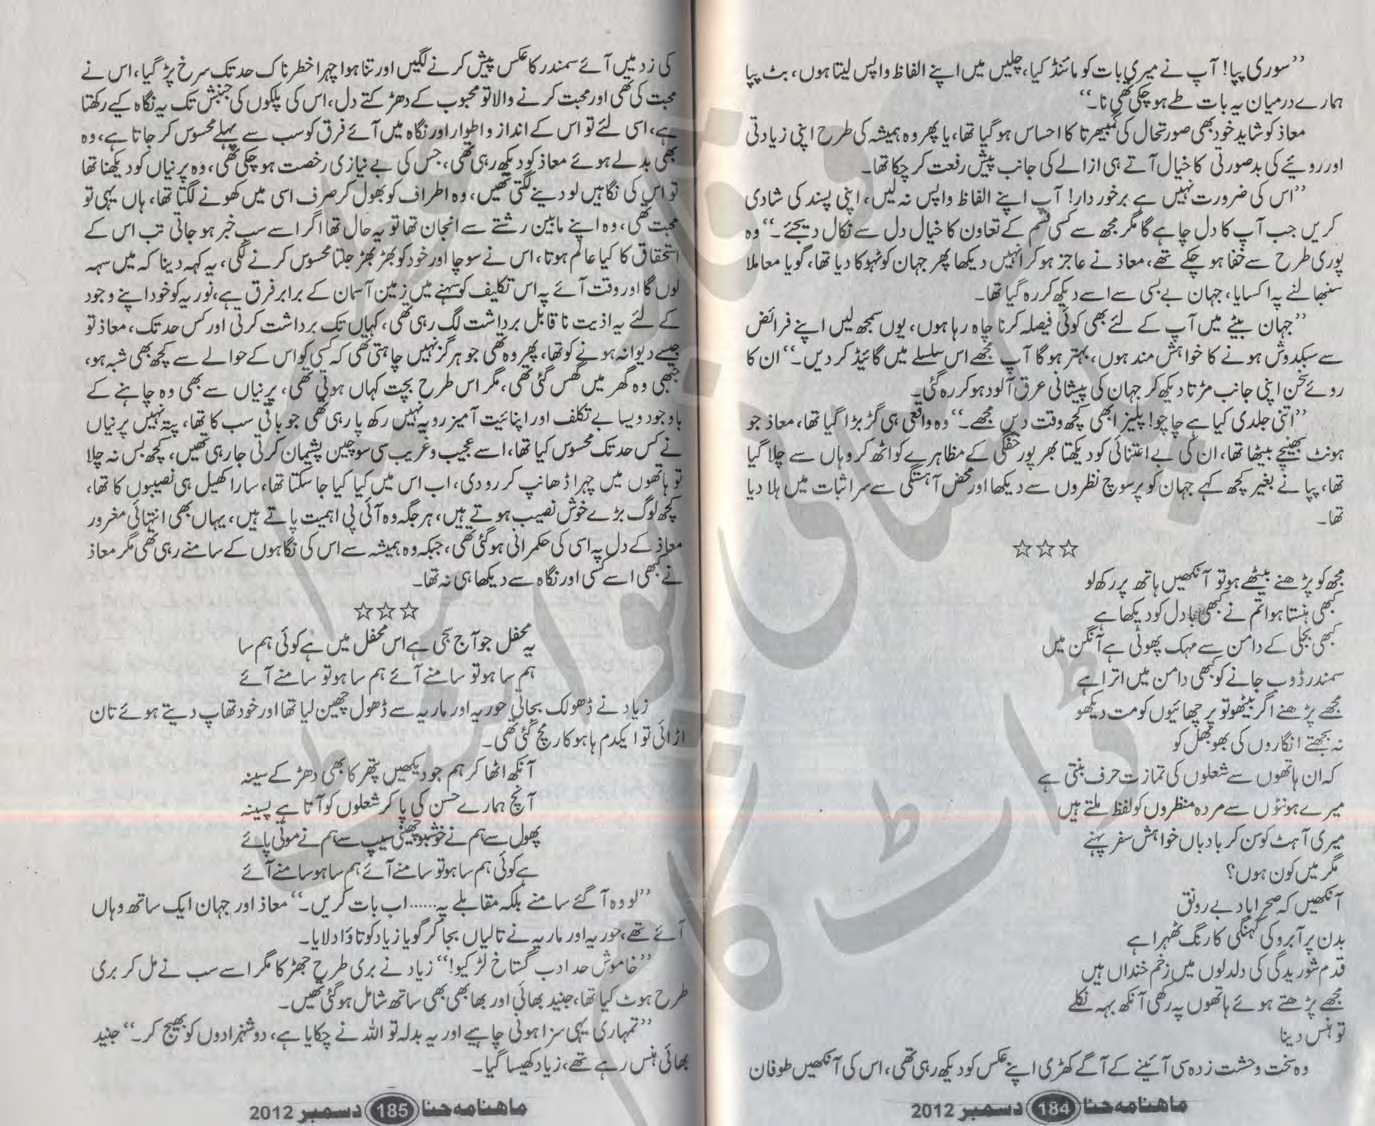 ’’سوری پپا! آپ نے میری بات کو مائنڈ کیا، چلیں میں اپنے الفاظ واپس لیتا ہوں، بٹ پپا
ہمارے درمیان یہ بات طے ہو چکی تھی نا۔‘‘
معاذ کو شاید خود بھی صورتحال کی گمبھیرتا کا احساس ہو گیا تھا، یا پھر وہ ہمیشہ کی طرح اپنی زیادتی
اور رویئے کی بدصورتی کا خیال آتے ہی ازالے کی جانب پیش رفت کر چکا تھا۔
’’اس کی ضرورت نہیں ہے برخوردار! آپ اپنے الفاظ واپس نہ لیں، اپنی پسند کی شادی
کریں جب آپ کا دل چاہے گا مگر مجھ سے کسی قسم کے تعاون کا خیال دل سے نکال دیجئے۔‘‘ وہ
پوری طرح سے خفا ہو چکے تھے، معاذ نے عاجز ہو کر انہیں دیکھا پھر جہان کو ٹہوکا دیا تھا، گویا معاملا
سنبھالنے پہ اکسایا، جہان بے بسی سے اسے دیکھ کر رہ گیا تھا۔
’’جہان بیٹے میں آپ کے لئے بھی کوئی فیصلہ کرنا چاہ رہا ہوں، یوں سمجھ لیں اپنے فرائض
سے سبکدوش ہونے کا خواہش مند ہوں، بہتر ہو گا آپ مجھے اس سلسلے میں گائیڈ کر دیں۔‘‘ ان کا
روئے سخن اپنی جانب مڑتا دیکھ کر جہان کی پیشانی عرق آلود ہو کر رہ گئی۔
’’اتنی جلدی کیا ہے چاچو! پلیز ابھی کچھ وقت دیں مجھے۔‘‘ وہ واقعی ہی گڑبڑا گیا تھا، معاذ جو
ہونٹ بھینچے بیٹھا تھا، ان کی بے اعتنائی کو دیکھتا بھرپور خفگی کے مظاہرے کو اٹھ کر وہاں سے چلا گیا
تھا، پپا نے بغیر کچھ کہے جہان کو پرسوچ نظروں سے دیکھا اور محض آہستگی سے سر اثبات میں ہلا دیا
تھا۔
☆☆☆
مجھ کو پڑھنے بیٹھے ہو تو آنکھیں ہاتھ پر رکھ لو
کبھی ہنستا ہوا تم نے کبھی بادل کو دیکھا ہے
کبھی بجلی کے دامن سے مہک پھوٹی ہے آنگن میں
سمندر ڈوب جانے کو کبھی دامن میں اترا ہے
مجھے پڑھنے اگر بیٹھو تو پرچھائیوں کو مت دیکھو
نہ بجھتے انگاروں کی بھوبھل کو
کہ ان ہاتھوں سے شعلوں کی تمازت حرف بنتی ہے
میرے ہونٹوں سے مردہ منظروں کو لفظ ملتے ہیں
میری آہٹ کو سن کر بادباں خواہش سفر پہنے
مگر میں کون ہوں؟
آنکھیں کہ صحرا باد بے رونق
بدن پر آبرو کی کہنگی کا رنگ ٹھہرا ہے
قدم شوریدگی کی دلدلوں میں زخم خنداں ہیں
مجھے پڑھتے ہوئے ہاتھوں پہ رکھی آنکھ بہہ نکلے
تو ہنس دینا
وہ سخت وحشت زدہ سی آئینے کے آگے کھڑی اپنے عکس کو دیکھ رہی تھی، اس کی آنکھیں طوفان
ماهنامه حنا 184 دسمبر 2012
کی زد میں آئے سمندر کا عکس پیش کرنے لگیں اور تنا ہوا چہرا خطرناک حد تک سرخ پڑ گیا، اس نے
محبت کی تھی اور محبت کرنے والا تو محبوب کے دھڑکتے دل، اس کی پلکوں کی جنبش تک پہ نگاہ کیے رکھتا
ہے، اسی لئے تو اس کے انداز و اطوار اور نگاہ میں آئے فرق کو سب سے پہلے محسوس کر جاتا ہے، وہ
بھی بدلے ہوئے معاذ کو دیکھ رہی تھی، جس کی بے نیازی رخصت ہو چکی تھی، وہ پرنیاں کو دیکھنا تھا
تو اس کی نگاہیں لو دینے لگتی تھیں، وہ اطراف کو بھول کر صرف اسی میں کھونے لگتا تھا، ہاں یہی تو
محبت تھی، وہ اپنے مابین رشتے سے انجان تھا تو یہ حال تھا اگر اسے سب خبر ہو جاتی تب اس کے
استحقاق کا کیا عالم ہوتا، اس نے سوچا اور خود کو بھڑ بھڑ جلتا محسوس کرنے لگی، یہ کہہ دینا کہ میں سہہ
لوں گا اور وقت آئے پہ اس تکلیف کو سہنے میں زمین آسمان کے برابر فرق ہے، نوریہ کو خود اپنے وجود
کے لئے یہ اذیت ناقابل برداشت لگ رہی تھی، کہاں تک برداشت کرتی اور کس حد تک، معاذ تو
جیسے دیوانہ ہونے کو تھا، پھر وہ تھی جو ہرگز نہیں چاہتی تھی کہ کسی کو اس کے حوالے سے کچھ بھی شبہ ہو،
تبھی وہ گھر میں گھس گئی تھی، مگر اس طرح بچت کہاں ہوتی تھی، پرنیاں سے بھی وہ چاہنے کے
باوجود ویسا بے تکلف اور اپنائیت آمیز رویہ نہیں رکھ پا رہی تھی جو باقی سب کا تھا، پتہ نہیں پرنیاں
نے کس حد تک محسوس کیا تھا، اسے عجیب و غریب سی سوچیں پشیمان کرتی جا رہی تھیں، کچھ بس نہ چلا
تو ہاتھوں میں چہرا ڈھانپ کر رو دی، اب اس میں کیا کیا جا سکتا تھا، سارا کھیل ہی نصیبوں کا تھا،
کچھ لوگ بڑے خوش نصیب ہوتے ہیں، ہر جگہ وہ آئی پی اہمیت پاتے ہیں، یہاں بھی انتہائی مغرور
معاذ کے دل پہ اسی کی حکمرانی ہو گئی تھی، جبکہ وہ ہمیشہ سے اس کی نگاہوں کے سامنے رہی تھی مگر معاذ
نے کبھی اسے کسی اور نگاہ سے دیکھا ہی نہ تھا۔
☆☆☆
یہ محفل جو آج سجی ہے اس محفل میں ہے کوئی ہم سا
ہم سا ہو تو سامنے آئے ہم سا ہو تو سامنے آئے
زیاد نے ڈھولک بجاتی حوریہ اور ماریہ سے ڈھول چھین لیا تھا اور خود تھاپ دیتے ہوئے تان
اڑائی تو ایکدم ہاہوکار مچ گئی تھی۔
آنکھ اٹھا کر ہم جو دیکھیں پتھر کا بھی دھڑکے سینہ
آنچ ہمارے حسن کی پا کر شعلوں کو آتا ہے پسینہ
پھول سے ہم نے خوشبو چھینی سیپ سے ہم نے موتی پائے
ہے کوئی ہم سا ہو تو سامنے آئے ہم سا ہو سامنے آئے
’’لو وہ آ گئے سامنے بلکہ مقابلے پہ...... اب بات کریں۔‘‘ معاذ اور جہان ایک ساتھ وہاں
آئے تھے، حوریہ اور ماریہ نے تالیاں بجا کر گویا زیاد کو تاؤ دلایا۔
’’خاموش حد ادب گستاخ لڑکیو!‘‘ زیاد نے بری طرح جھڑکا مگر اسے سب نے مل کر بری
طرح ہوٹ کیا تھا، جنید بھائی اور بھابھی بھی ساتھ شامل ہو گئی تھیں۔
’’تمہاری یہی سزا ہونی چاہیے اور یہ بدلہ تو اللہ نے چکایا ہے، دو شہزادوں کو بھیج کر۔‘‘ جنید
بھائی ہنس رہے تھے، زیاد کھسیا گیا۔
ماهنامه حنا 185 دسمبر 2012